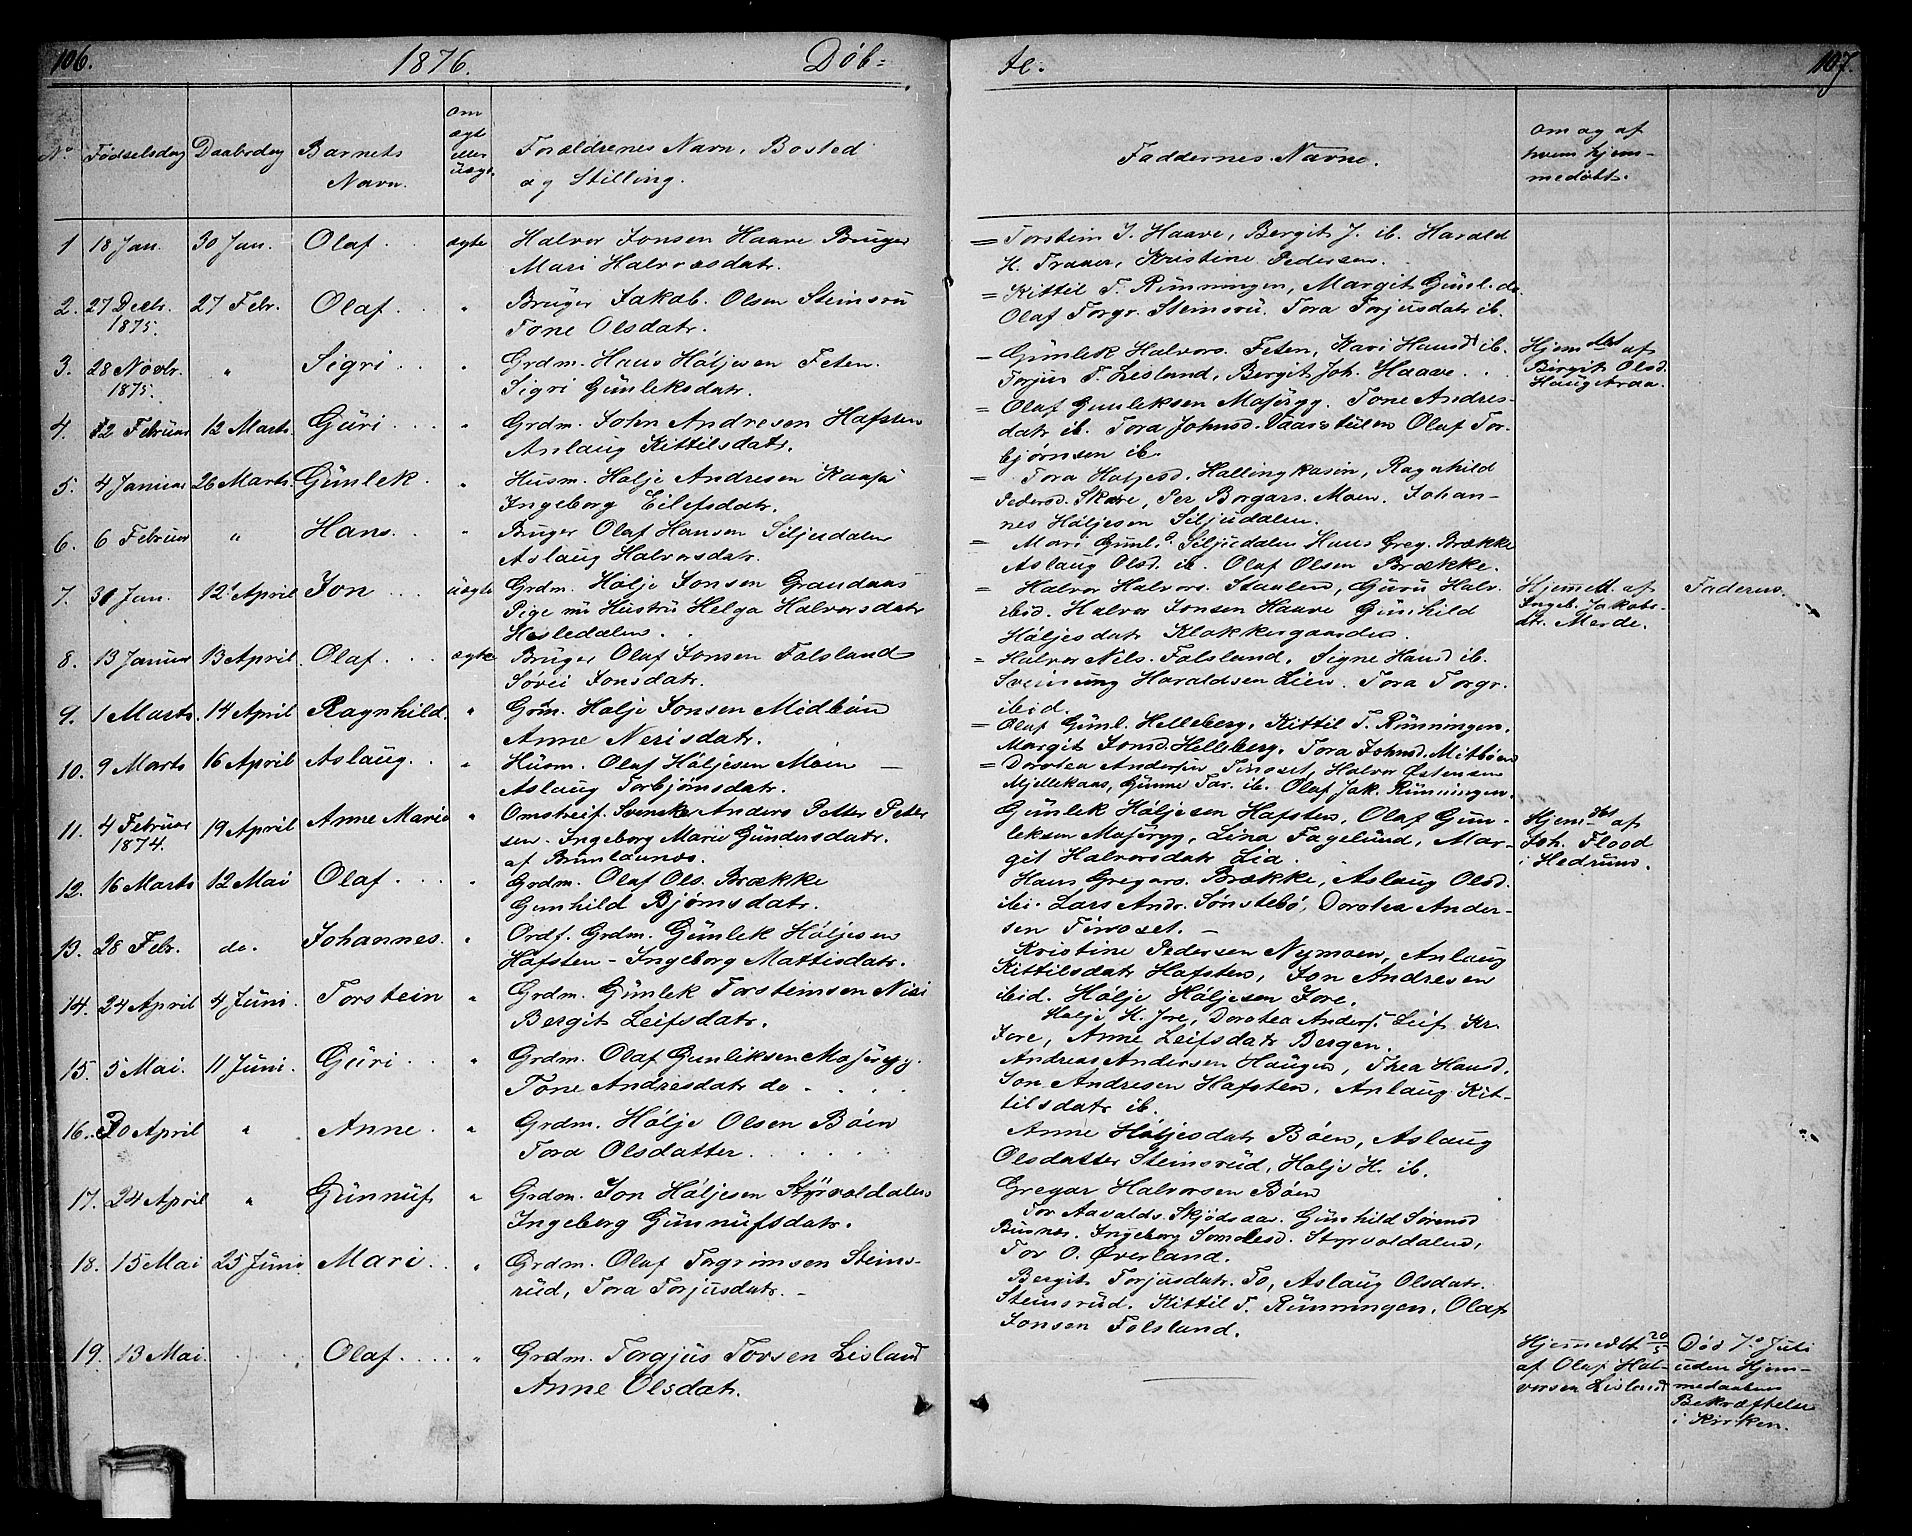 106. 1876. Døb-
te. 107.
No Fødselsdag Daabsdag Barnets Navn. Om ægte eller uægte Forældrenes Navn, Bosted og Stilling.
Faddernes Navne. Om og af hvem hjemmedøbt.
1 18 Jan. 30 Jan. Olaf. ægte Halvor Jonsen Haave Bruger
Mari Halvorsdatr.
= Torstein J. Haave, Bergit J. ib. Harald
H. Traaer, Kristine Pedersen.
2. 27 Decbr. 1875. 27 Febr. Olaf. " Bruger Jakob Olsen Steinsru
Tone Olsdatr.
= Kittil T. Rünningen, Margit Günl.
Olaf Torgr. Steinsrü. Tora Torjusdatr ib.
3. 28 Novbr. 1875. " Sigri " Grdm. Hans Höljesen Feten.
Sigri Günleksdatr.
Günlek Halvors. Feten, Kari Hansd ib.
Torjus T. Lisland, Bergit Joh. Haave.
Hjemdbt af
Birgit Olsd.
4. 12 Februar 12 Marts. Güri " Grdm. John Andresen Hafsten
Anlaug Kittilsdatr.
= Olaf Gunleksen Majørgg. Tone Andres-
datr ib. Tora Johnsd. Vaarstulen Olaf Tor-
bjørnsen ib.
5. 4 Januar 26 Marts. Günlek. " Husm. Holje Andresen Kaasa
Ingeborg Eilefsdatr.
= Tora Holjesd. Hallingkasin, Ragnhild
Pedersd. Skare, Per Borgars. Moen. Johan-
nes Höljesen Siljudalen.
6. 6 Februar " Hans. " Bruger Olaf Hansen Siljudalen
Aslaug Halvorsdatr.
= Mari Günl. Siljudalen Hans Greg. Brække
Aslaug Olsd. ib. Olaf Olsen Brække.
7. 30 Jan. 12 April Jon üægte Grdm. Hölje Jonsen Grandaas
Pige nu Hustrü Helga Halvorsdatr
Hesledalen.
= Halvor Halvors. Staulen, Guru Halv.
ibid. Halvor Jonsen Haave Günhild
Höljesdatr Klokkergaarden.
Hjemmedt. af
Ingeb. Jakobs-
dtr. Merde.
Faderens.
8. 13 Januar 13 April. Olaf. ægte Bruger Olaf Jonsen Folsland
Søvei Jonsdatr.
= Halvor Nels. Folsland. Signe Hansd ib.
Sveinung Haraldsen Lien. Tora Torgr.
ibid.
9. 1 Marts. 14 April Ragnhild. " Gdm. Holje Jonsen Midbøen
Anne Nerisdatr.
= Olaf Günl. Helleberg, Kittil T. Rünningen.
Margit Jonsd. Helleberg. Tora Johnsd. Mitbøen
10. 9 Marts 16 April Aslaug. " Husm. Olaf Höljesen Moen
Aslaug Torbjørnsdatr.
= Dorotea Andersen Tinoset, Halvor Østensen
Mjellekaas, Gunne Tar. ib. Olaf Jak. Rünningen.
11. 4 Februar 1874. 19 April Anne Marie " Omstreif. Svenske Anders Petter Peter
sen. Ingeborg Marie Gündersdatr.
af Brunlaunæs.
Günlek Höljesen Hafsten, Olaf Gün-
leksen Majørgg, Lina Fagelund, Mar-
git Halvorsdatr Lid.
Hjemdbt af
Joh. Flood
i Hedrum.
12. 16 Marts 12 Mai Olaf. " Grdm. Olaf Ols. Brække
Gunhild Bjørnsdatr.
Hans Gregars. Brække, Aslaug Olsd.
ibi. Lars Andr. Sønstebø, Dorotea Ander-
sen Tinoset.
13. 28 Febr. do. Johannes. " Ordf. Grdm. Günlek Höljesen
Hafsten - Ingeborg Mattisdatr.
Kristine Pedersen Nymoen, Anlaug
Kittilsdatr Hafsten, Jon Andresen
ibid. Hölje Höljesen Jore.
14. 24 April 4 Juni. Torstein " Grdm. Günlek Torsteinsen Nisi
Bergit Leifsdatr.
Holje H. Jore, Dorotea Anders. Leif Kr.
Jore, Anne Leifsdatr Bergen.
15. 5 Mai. 11 Juni. Güri " Grdm. Olaf Gunliksen Majørgg.
Tone Andresdatr do
Andreas Andersen Haugen, Thea Hansd.
Jon Andresen Hafsten, Anlaug Kit-
tilsdatr ib.
16. 30 April " Anne. " Grdm. Hölje Olsen Bøen
Tora Olsdatter
Anne Höljesdatr Bøen, Aslaug
Olsdatter Steinsrud, Holje H. ib.
Gregar Halvorsen Bøen
17. 24 April " Günnüf. " Grdm. Jon Höljesen Styrvoldalen
Ingeborg Günnüfsdatr.
Tor Aavalds. Skjødsaas. Günhild Sørensd
Busnes. Ingeborg Somdlesd. Styrvoldalen,
Tor O. Øverland.
18. 15 Mai 25 Juni Mari. " Grdm. Olaf Togrimsen Steins-
rüd, Tora Torjusdatr.
Bergit Torjusdatr. To, Aslaug Olsdatr.
Steinsrüd. Kittil T. Rünningen, Olaf
Jonsen Folsland.
19. 13 Mai. Olaf. " Grdm. Torgjus Torsen Lisland
Anne Olsdatr.
Hjemmedbt 20/5
af Olaf Hal-
vorsen Lisland
Død 7o Juli
uden Hjem-
medaabens
Bekræftelse
i Kirken.